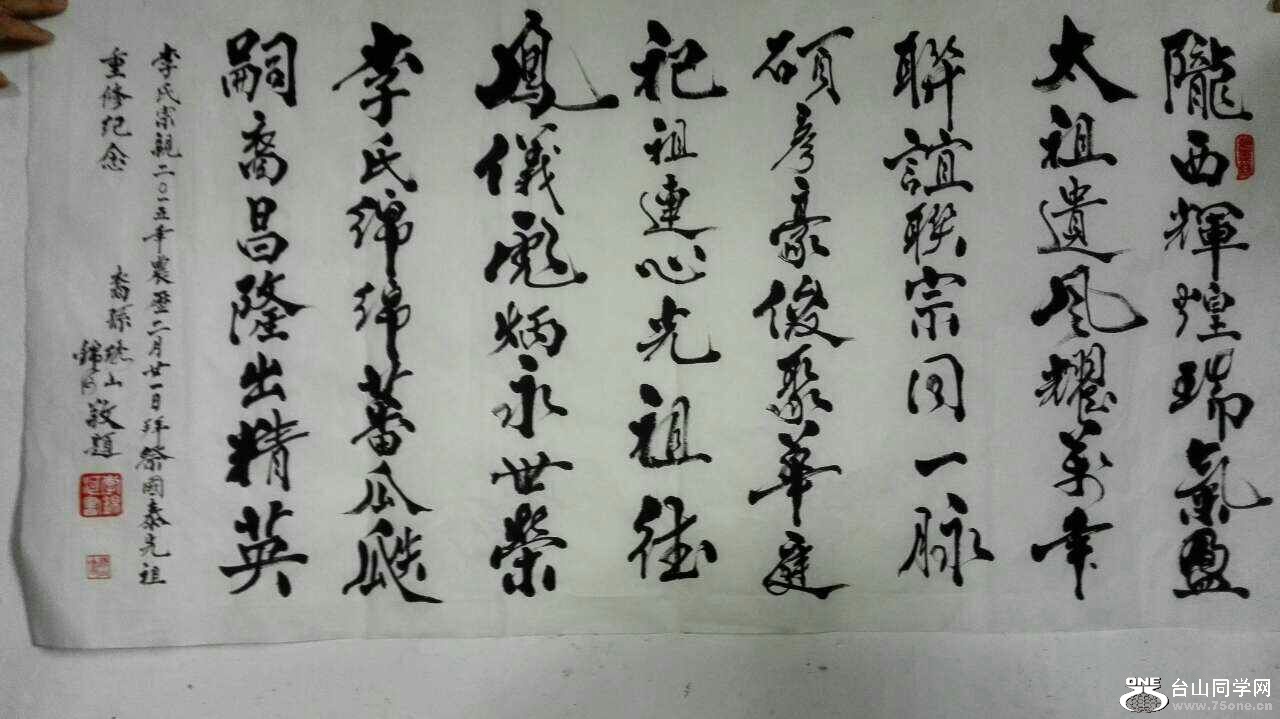 隴西輝煌瑞氣盈
太祖遺風耀萬年
聯誼聯宗同一脉
碩彥豪俊聚華庭
祀祖連心光祖德
鳳儀彪炳永世榮
李氏綿綿蕃瓜瓞
嗣裔昌隆出精英
李氏宗親二〇一五年農歷二月廿一日拜祭國泰先祖
重修纪念
裔孫 山 敬題
ONE
台山同学网
www.75one.cn